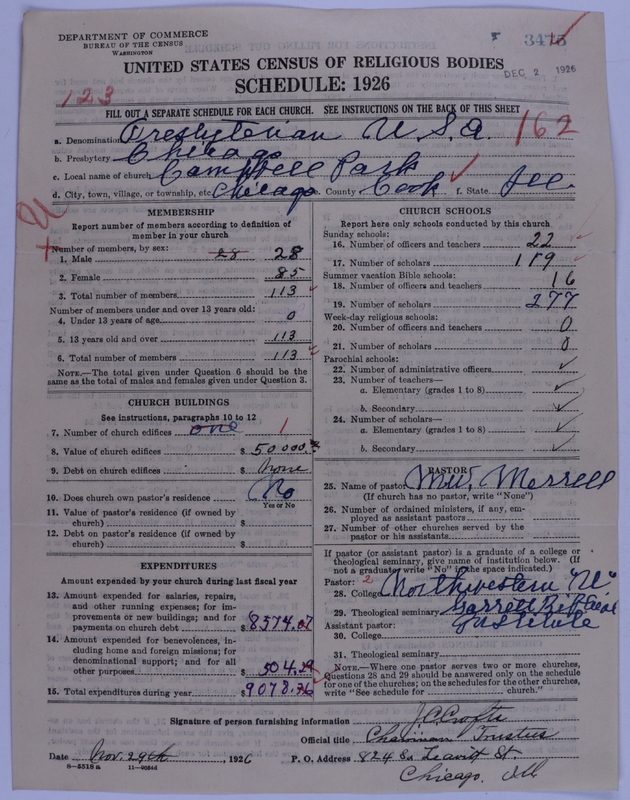 DEPARTMENT OF COMMERCE
BUREAU OF THE CENSUS
WASHINGTON
DEC 2 1926
UNITED STATES CENSUS OF RELIGIOUS BODIES
SCHEDULE: 1926
123
FILL OUT A SEPARATE SCHEDULE FOR EACH CHURCH. SEE INSTRUCTIONS ON THE BACK OF THIS SHEET
a. Denomination Presbyterian U.S.A. 162
b. Presbytery Chicago
c. Local name of church Campbell Park
d. City, town, village, or township, etc. Chicago County Cook f. State Ill.
MEMBERSHIP
Report number of members according to definition of member in your church
Number of members, by sex:
1. Male 28 28
2. Female 85
3. Total number of members 113
Number of members under and over 13 years old:
4. Under 13 years of age 0
5. 13 years old and over 113
6. Total number of members 113
NOTE.—The total given under Question 6 should be the same as the total of males and females given under Question 3.
CHURCH BUILDINGS
See instructions, paragraphs 10 to 12
7. Number of church edifices one 1
8. Value of church edifices $ 50,000.
9. Debt on church edifices $ None
10. Does church own pastor's residence No
Yes or No
11. Value of pastor's residence (if owned by church) $
12. Debt on pastor's residence (if owned by church) $
EXPENDITURES
Amount expended by your church during last fiscal year
13. Amount expended for salaries, repairs, and other running expenses; for improvements or new buildings; and for payments on church debt $ 8574.07
14. Amount expended for benevolences, including home and foreign missions; for denominational support; and for all other purposes $ 504.29
15. Total expenditures during year $ 9078.36
CHURCH SCHOOLS
Report here only schools conducted by this church
Sunday schools:
16. Number of officers and teachers 22
17. Number of scholars 119
Summer vacation Bible schools:
18. Number of officers and teachers 16
19. Number of scholars 277
Week-day religious schools:
20. Number of officers and teachers 0
21. Number of scholars 0
Parochial schools:
22. Number of administrative officers
23. Number of teachers—
a. Elementary (grades 1 to 8)
b. Secondary
24. Number of scholars—
a. Elementary (grades 1 to 8)
b. Secondary
PASTOR
25. Name of pastor Merrell
(If church has no pastor, write "None")
26. Number of ordained ministers, if any, employed as assistant pastors
27. Number of other churches served by the pastor or his assistants
If pastor (or assistant pastor) is a graduate of a college or theological seminary, give name of institution below. (If not a graduate write "No" in the space indicated.)
Pastor: 2
28. College Northwestern U.
29. Theological seminary Garrett Biblical Institute
Assistant pastor:
30. College
31. Theological seminary
NOTE.—Where one pastor serves two or more churches, Questions 28 and 29 should be answered only on the schedule for one of the churches; on the schedules for the other churches, write "See schedule for church."
Signature of person furnishing information J.C. Crofts
Official title Chairman Trustees
Date Nov. 29th, 1926 P. O. Address 824 So Leavitt St.
Chicago, Ill
8-5318 a